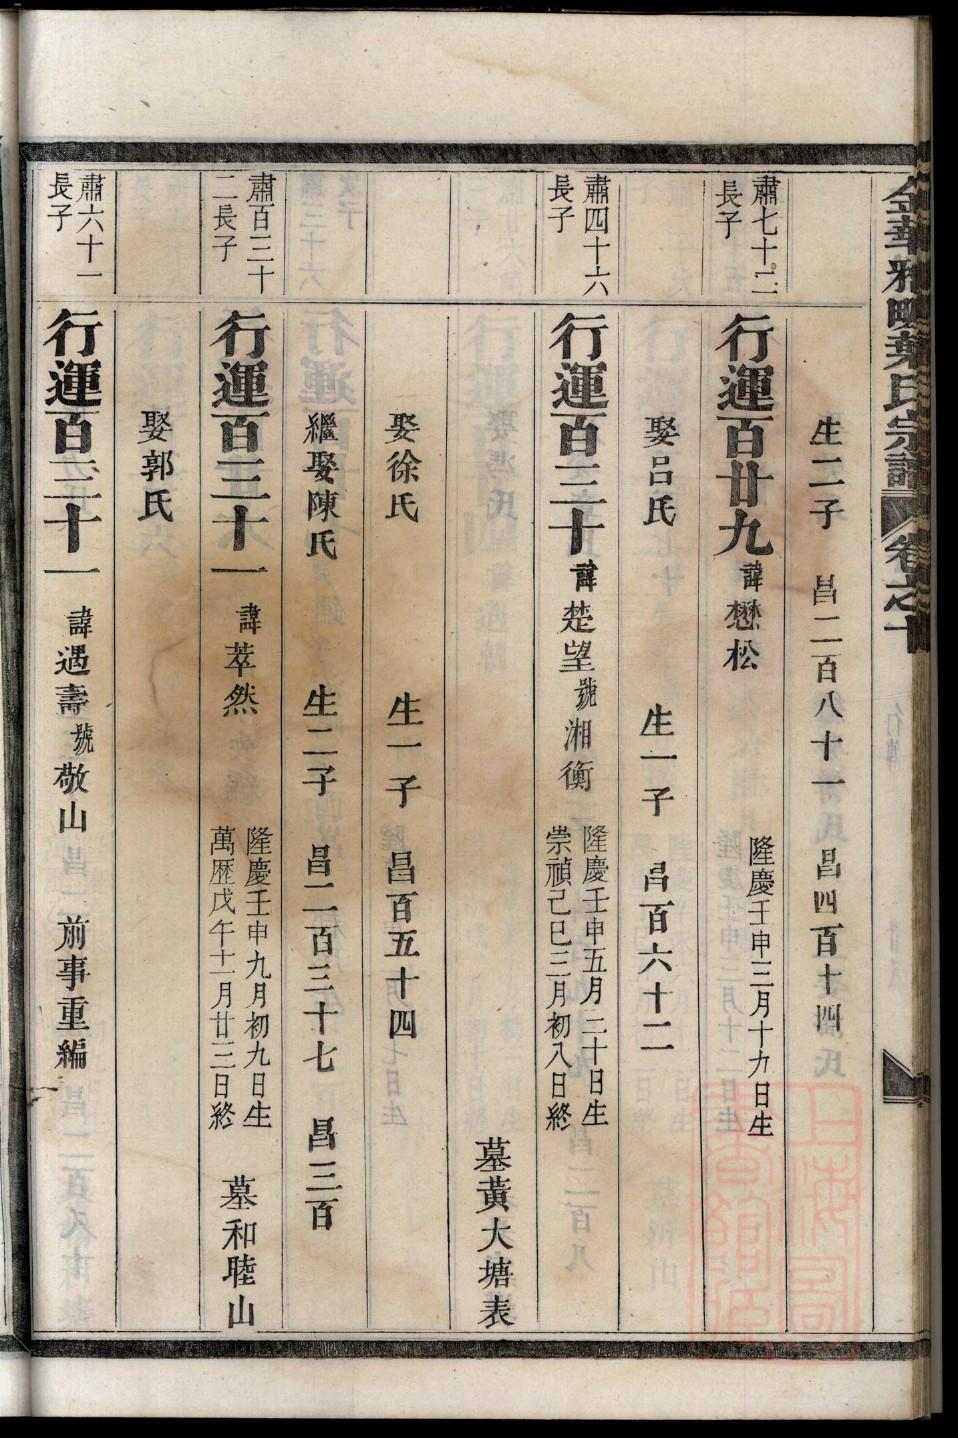 金華雅畈葉氏宗譜 卷之十
生二子 昌二百八十一 昌四百十四
肅七十二
長子
行運百廿九 諱懋松 隆慶壬申三月十九日生
娶呂氏 生一子 昌百六十二
肅四十六
長子
行運百三十 諱楚望 號湘衡 隆慶壬申五月二十日生
崇禎己巳三月初八日終
墓黃大塘表
娶徐氏 生一子 昌百五十四
繼娶陳氏 生二子 昌二百三十七 昌三百
肅百三十
二長子
行運百三十一 諱萃然 隆慶壬申九月初九日生
萬歷戊午十一月廿三日終
墓和睦山
娶郭氏
肅六十一
長子
行運百三十一 諱遇壽 號敬山 前事重編
上海圖書館藏